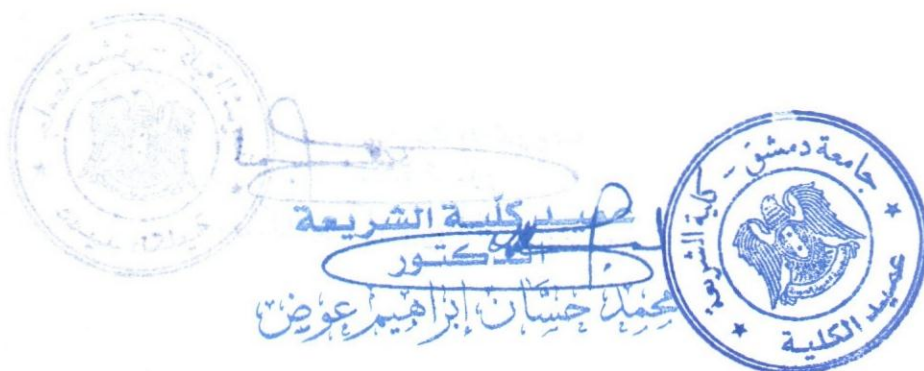 عميد كلية الشريعة
الدكتور
محمد حسان إبراهيم عوض
جامعة دمشق - كلية الشريعة
عميد الكلية